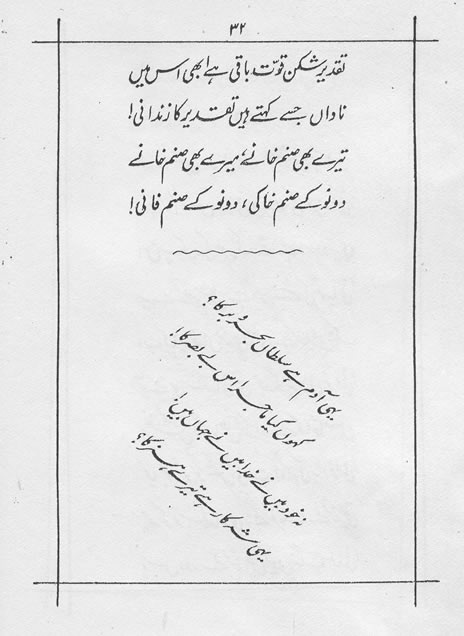 ۳۲
تقدیر شکن قوّت باقی ہے ابھی اس میں
ناداں جسے کہتے ہیں تقدیر کا زندانی!
تیرے بھی صنم خانے، میرے بھی صنم خانے
دونو کے صنم خاکی، دونو کے صنم فانی!
یہی آدم ہے سلطاں بحر و بر کا؟
کہوں کیا ماجرا اس بے بصر کا!
نہ خود بیں نے خدا بیں نے جہاں بیں!
یہی شہ کار ہے تیرے ہنر کا؟